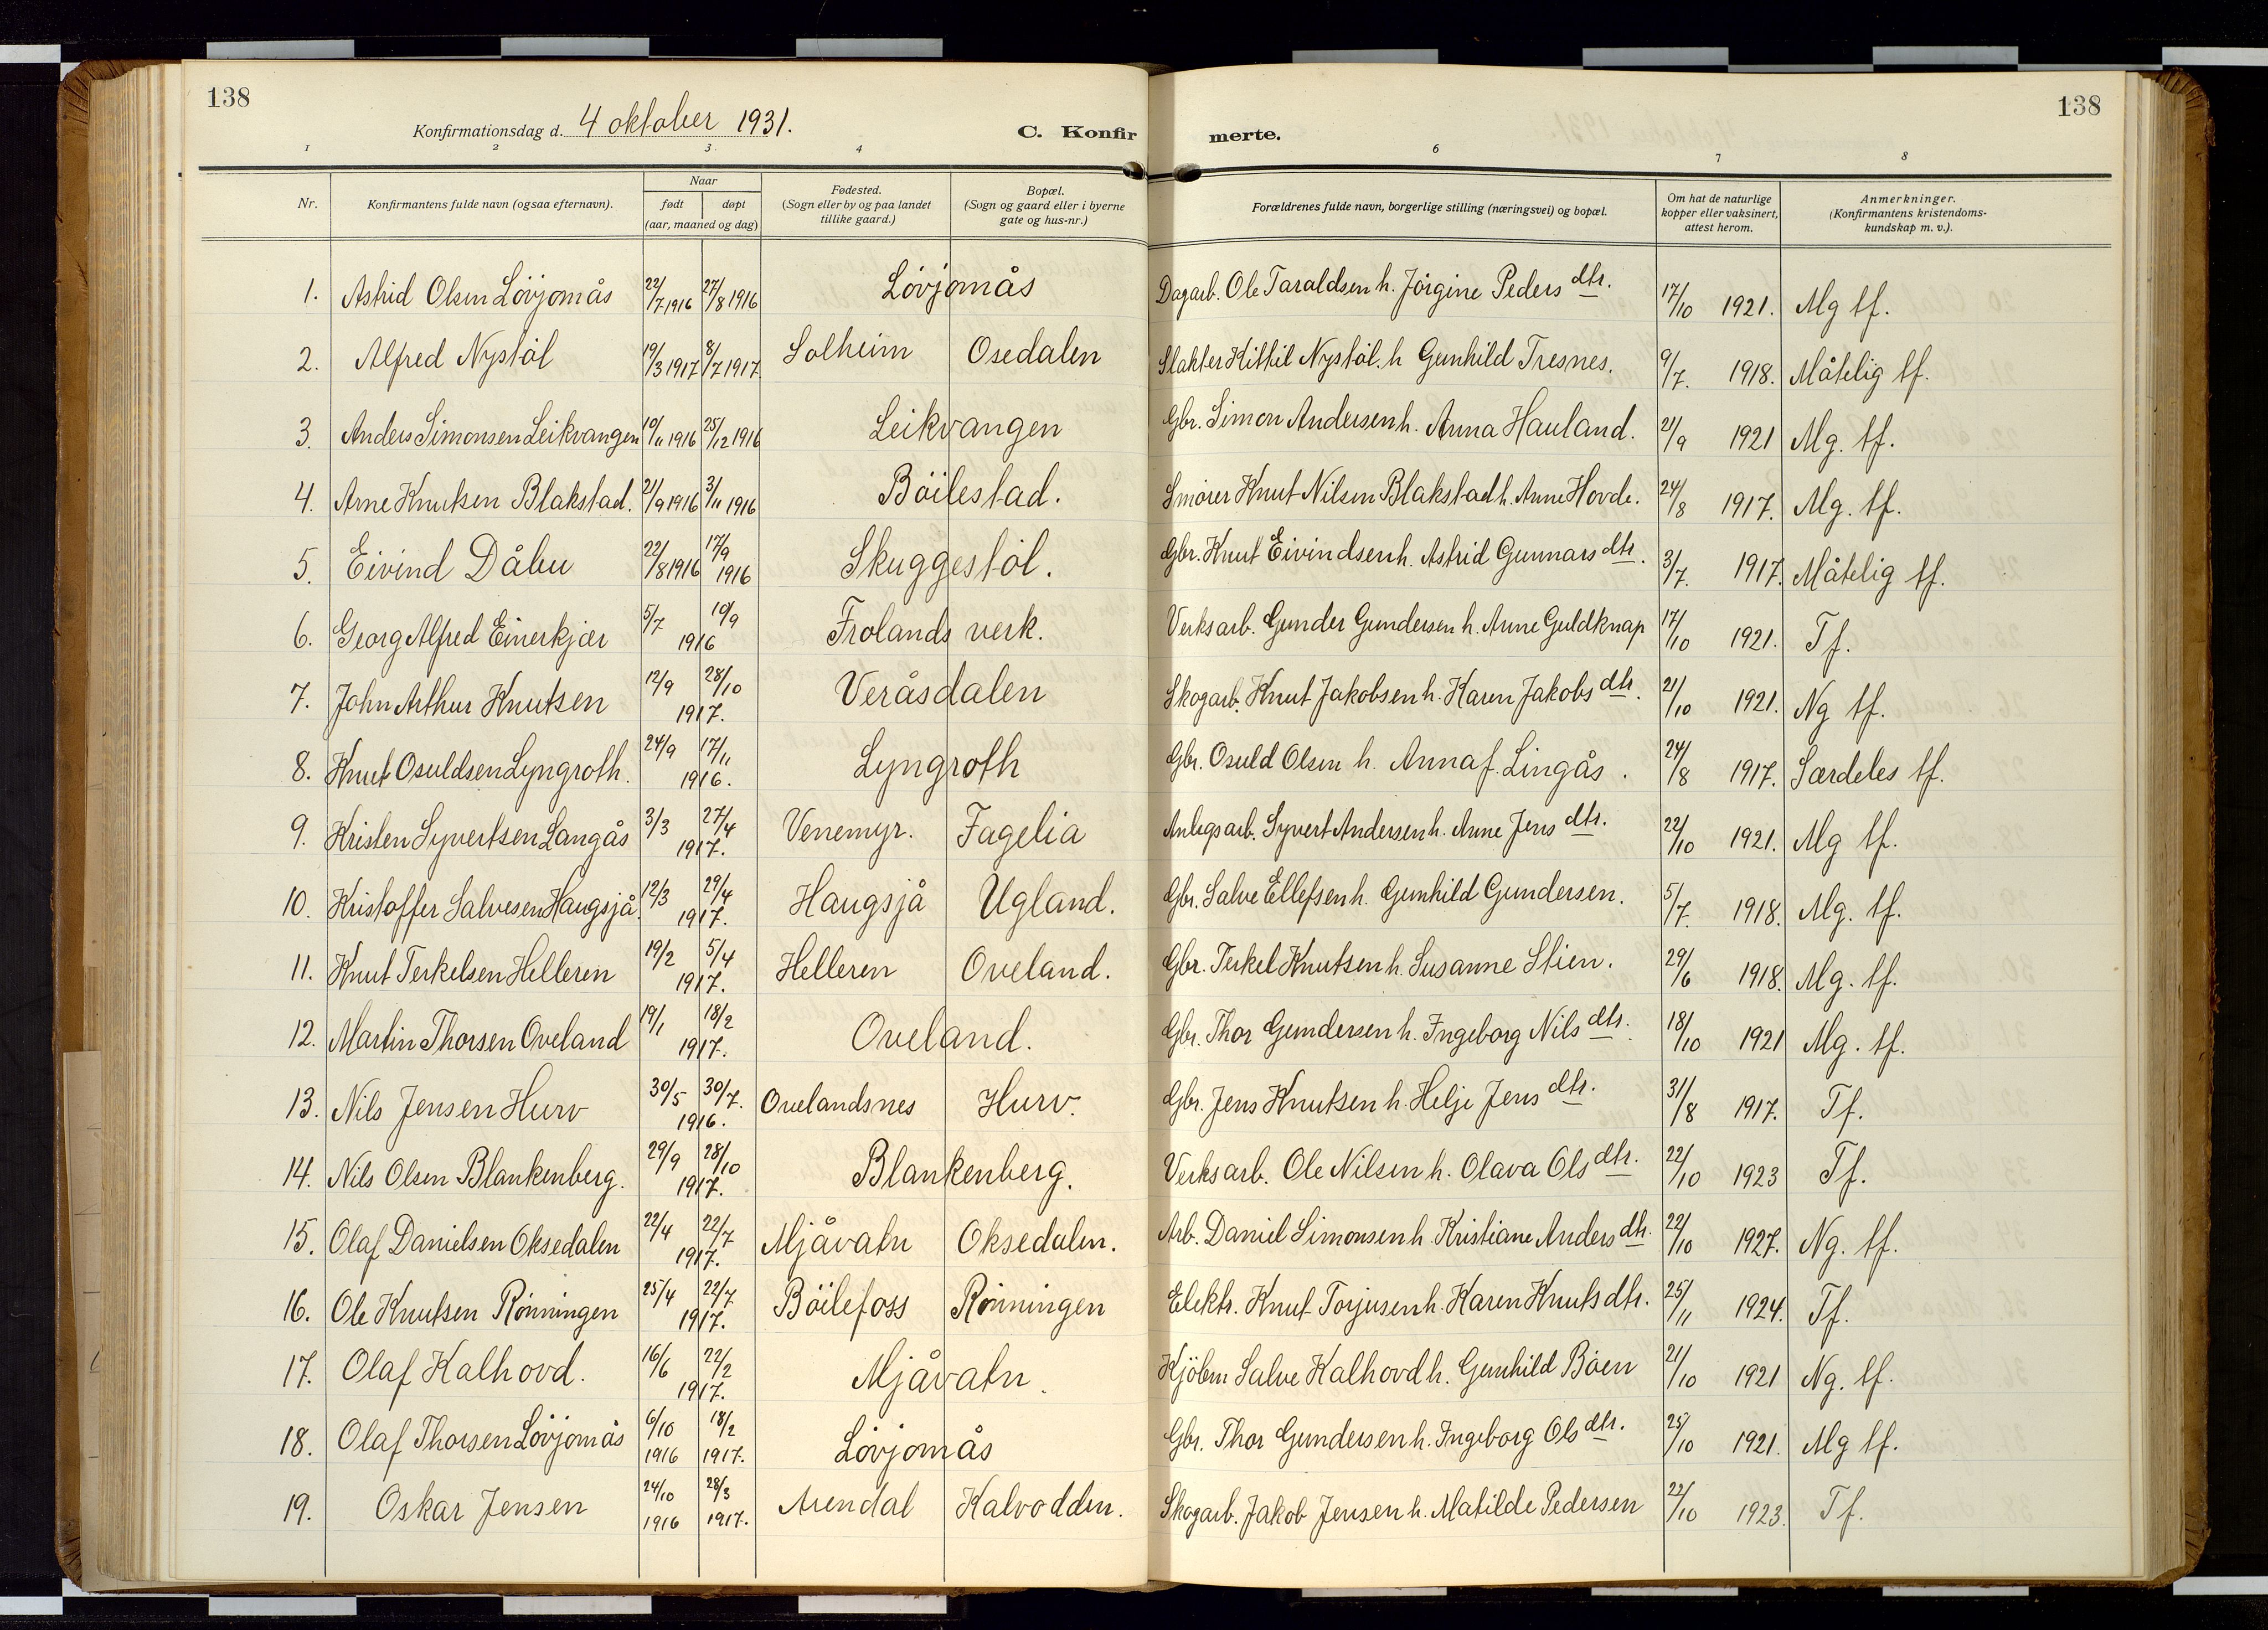 138
138
Konfirmationsdag d. 4 oktober 1931.
C. Konfir merte.
1 2 3 4 6 7 8
Nr.
Konfirmantens fulde navn (ogsaa efternavn).
Naar
født døpt
(aar, maaned og dag)
Fødested.
(Sogn eller by og paa landet
tillike gaard.)
Bopæl.
(Sogn og gaard eller i byerne
gate og hus-nr.)
Forældrenes fulde navn, borgerlige stilling (næringsvei) og bopæl.
Om hat de naturlige
kopper eller vaksinert,
attest herom.
Anmerkninger.
(Konfirmantens kristendoms-
kundskap m. v.).
1. Astrid Olsen Lövjomås 22/7 1916 27/8 1916 Lövjomås Dagarb. Ole Taraldsen h. Jörgine Peders dtr. 17/10 1921. Mg tf.
2. Alfred Nystöl 19/3 1917 8/7 1917. Solheim Osedalen Slakter Kittil Nystöl. h Gunhild Tresnes. 9/7. 1918. Måtelig tf.
3. Anders Simonsen Leikvangen 10/11 1916 25/12 1916 Leikvangen Gbr. Simon Andersen h. Anna Hauland. 21/9 1921 Mg. tf.
4. Arne Knutsen Blakstad. 21/9 1916 3/11 1916 Böilestad. Smörer Knut Nilsen Blakstad h. Anne Hovde. 24/8 1917. Mg. tf.
5. Eivind Dåbu 22/8 1916 17/9 1916 Skuggestöl. Gbr. Knut Eivindsen h. Astrid Gunnars dtr. 3/7. 1917. Måtelig tf.
6. Georg Alfred Einerkjær 5/7 10/9 1916 Frolands verk. Verksarb. Gunder Gundersen h. Anne Guldknap 17/10 1921. Tf.
7. John Arthur Knutsen 12/9 28/10 1917. Veråsdalen Skogarb. Knut Jakobsen h. Karen Jakobs dtr. 21/10 1921. Ng tf.
8. Knut Osuldsen Lyngroth. 24/9 17/11 1916. Lyngroth Gbr. Osuld Olsen h. Anna f. Lingås. 24/8 1917. Særdeles tf.
9. Kristen Syvertsen Langås 3/3 27/4 1917. Venemyr. Fagelia Anlegsarb. Syvert Andersen h. Anne Jens dtr. 22/10 1921. Mg tf.
10. Kristoffer Salvesen Haugsjå. 12/3 29/4 1917. Haugsjå Ugland. Gbr. Salve Ellefsen h. Gunhild Gundersen. 5/7. 1918. Mg. tf.
11. Knut Terkelsen Helleren 19/2 5/4 1917. Helleren Oveland. Gbr. Terkel Knutsen h. Susanne Stien. 29/6 1918. Mg. tf.
12. Martin Thorsen Oveland 19/1 18/2 1917. Oveland. Gbr. Thor Gundersen h. Ingeborg Nils dtr. 18/10 1921 Mg. tf.
13. Nils Jensen Hurv 30/5 30/7. 1916. Ovelandsnes Hurv. Gbr. Jens Knutsen h. Helje Jens dtr. 31/8 1917. Tf.
14. Nils Olsen Blankenberg. 29/9 28/10 1917. Blankenberg. Verksarb. Ole Nilsen h. Olava Ols dtr. 22/10 1923 Tf.
15. Olaf Danielsen Oksedalen 22/4 22/7 1917. Mjåvatn Oksedalen. Arb. Daniel Simonsen h. Kristiane Anders dtr. 22/10 1927. Ng. tf.
16. Ole Knutsen Rönningen 25/4 22/7 1917. Böilefoss Rönningen Elektr. Knut Torjusen h. Karen Knuts dtr. 25/11 1924. Tf.
17. Olaf Kalhovd. 16/6 22/2 1917. Mjåvatn. Kjöbm Salve Kalhovd h. Gunhild Böen 21/10 1921 Ng. tf.
18. Olaf Thorsen Lövjomås 6/10 1916 18/2 1917. Lövjomås Gbr. Thor Gundersen h. Ingeborg Ols dtr. 25/10 1921. Mg tf.
19. Oskar Jensen 24/10 1916 28/3 1917. Arendal Kalvodden. Skogarb. Jakob Jensen h. Matilde Pedersen 22/10 1923. Tf.